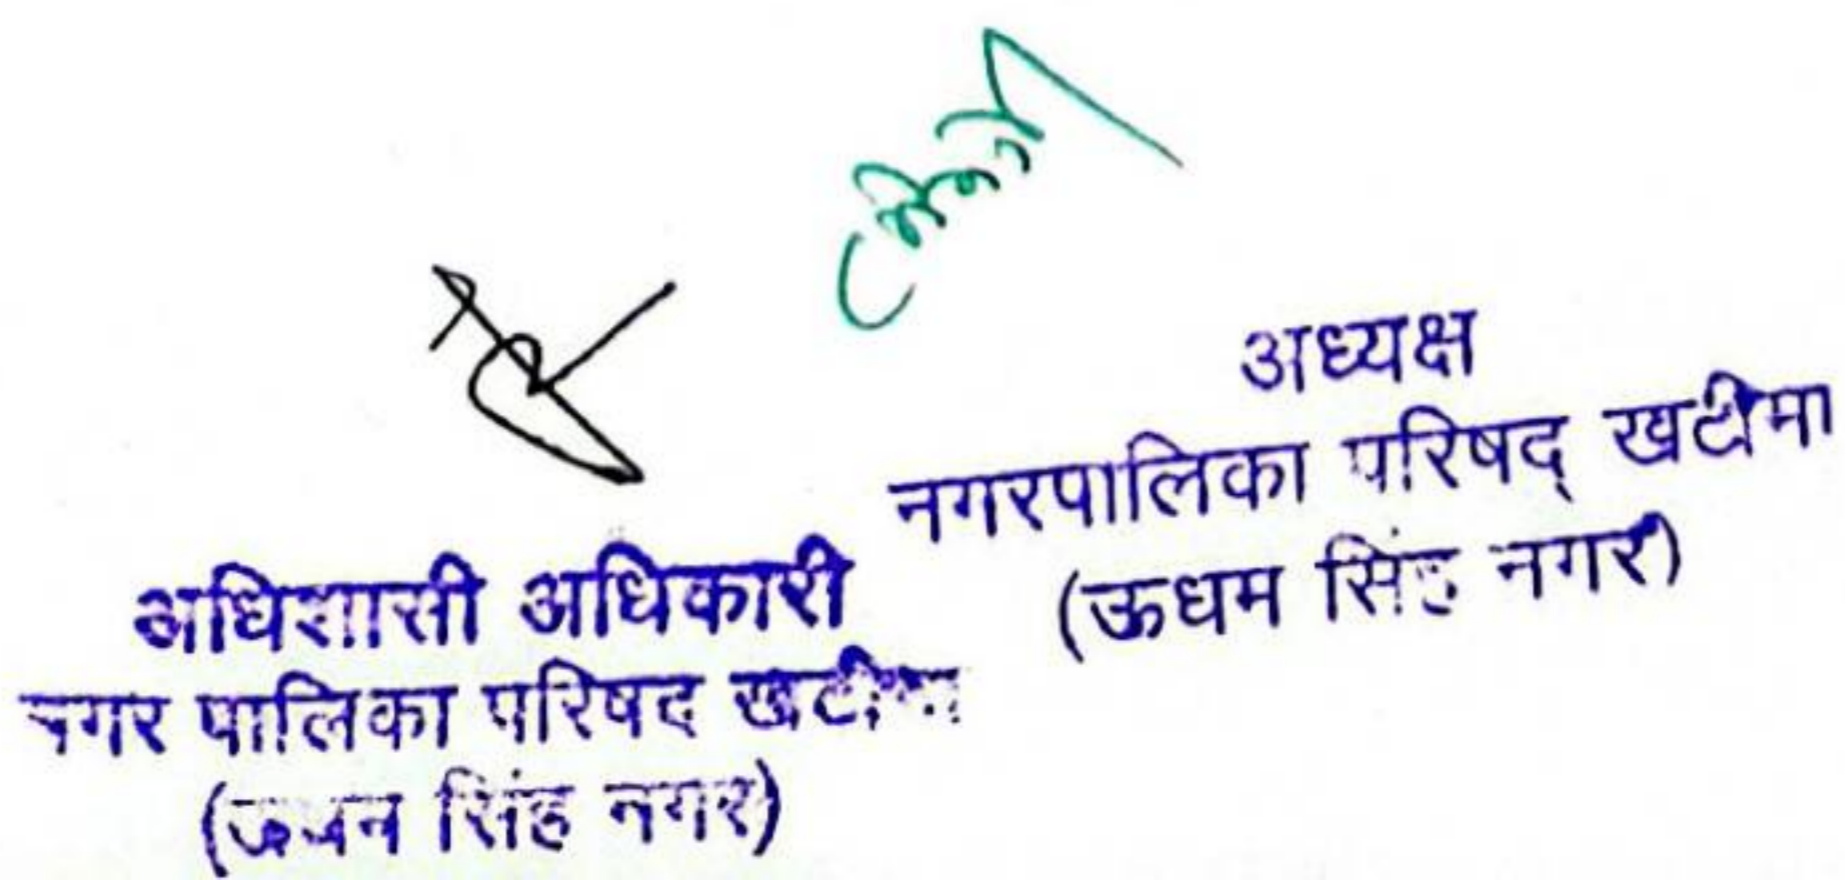 अध्यक्ष
नगरपालिका परिषद् खटीमा
(ऊधम सिंह नगर)
अधिशासी अधिकारी
नगर पालिका परिषद खटीमा
(ऊधम सिंह नगर)